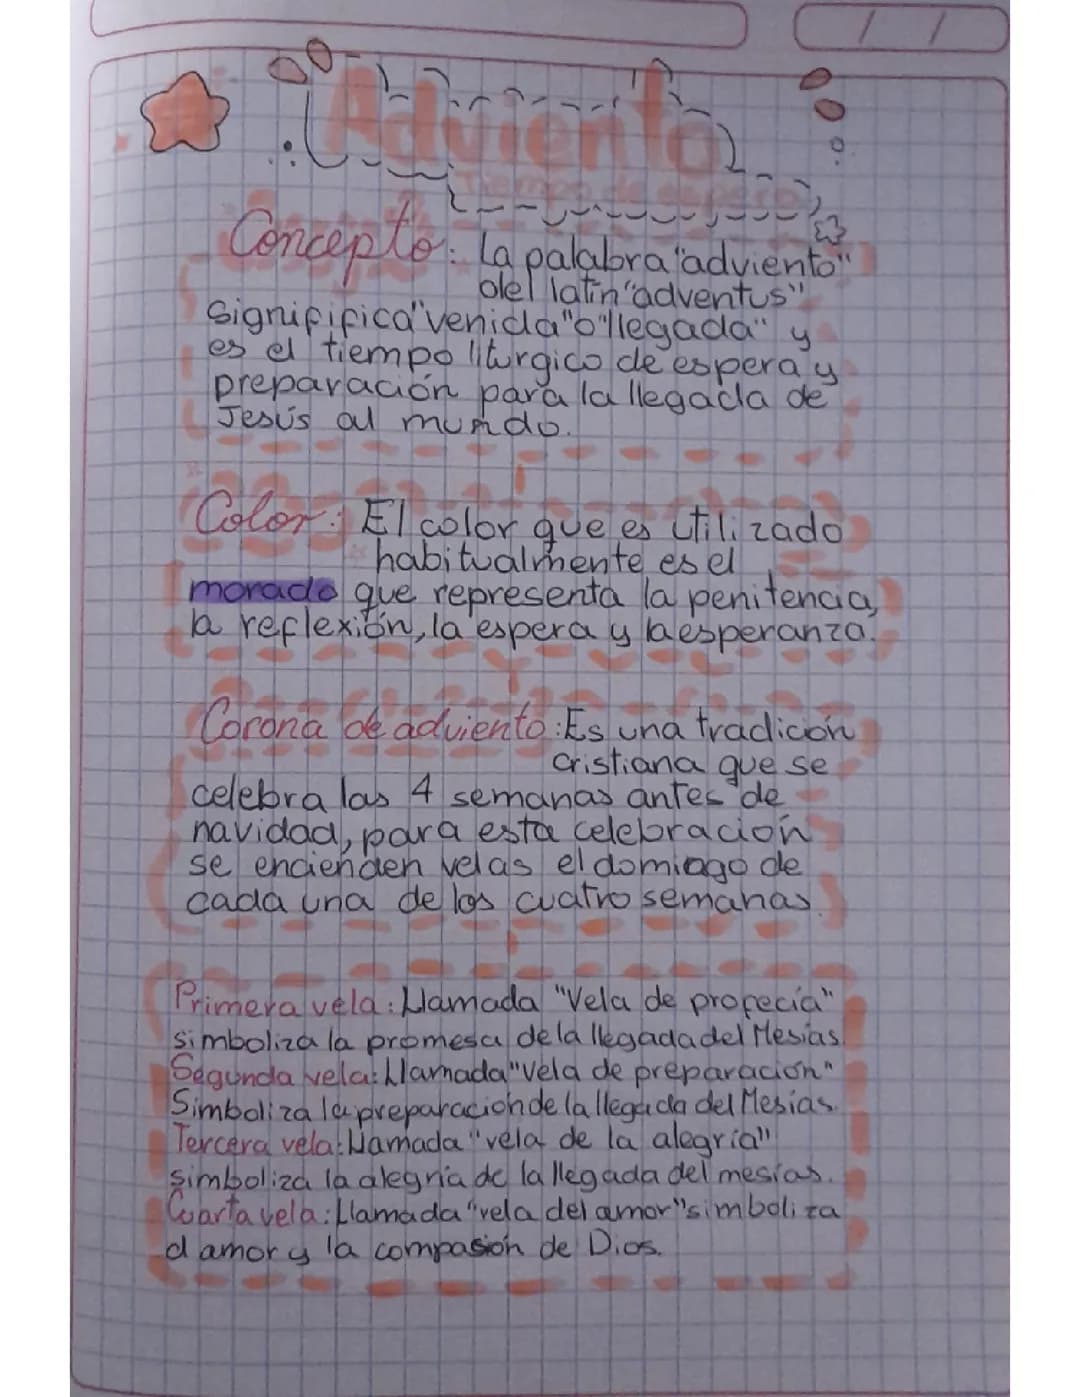 Adviento
Tiempo de espera
Concepto: La palabra "adviento"
del latin "adventus"
signipipica "venida" o "llegada" y
es el tiempo liturgico de espera y
preparación para la llegada de
Jesús al mundo.
Color: El color que es utilizado
habitualmente es el
morado que representa la penitencia,
la reflexión, la espera y la esperanza.
Corona de adviento: Es una tradición
cristiana que se
celebra las 4 semanas antes de
navidad, para esta celebración
se encienden velas el domingo de
cada una de las cuatro semanas.
Primera vela: Llamada "Vela de propecía"
simboliza la promesa de la llegada del Mesías.
Segunda vela: Llamada "Vela de preparación"
Simboliza la preparación de la llegada del Mesías.
Tercera vela: Llamada "vela de la alegría"
simboliza la alegría de la llegada del mesías.
Cuarta vela: Llamada "vela del amor" simboliza
el amor y la compasión de Dios.